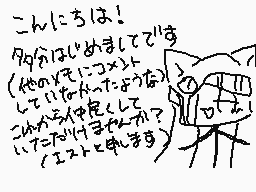 こんにちは!
多分はじめましてです
(他のメモにコメント
していなかったような)
これから仲良くして
いただけませんか?
(エストと申します)